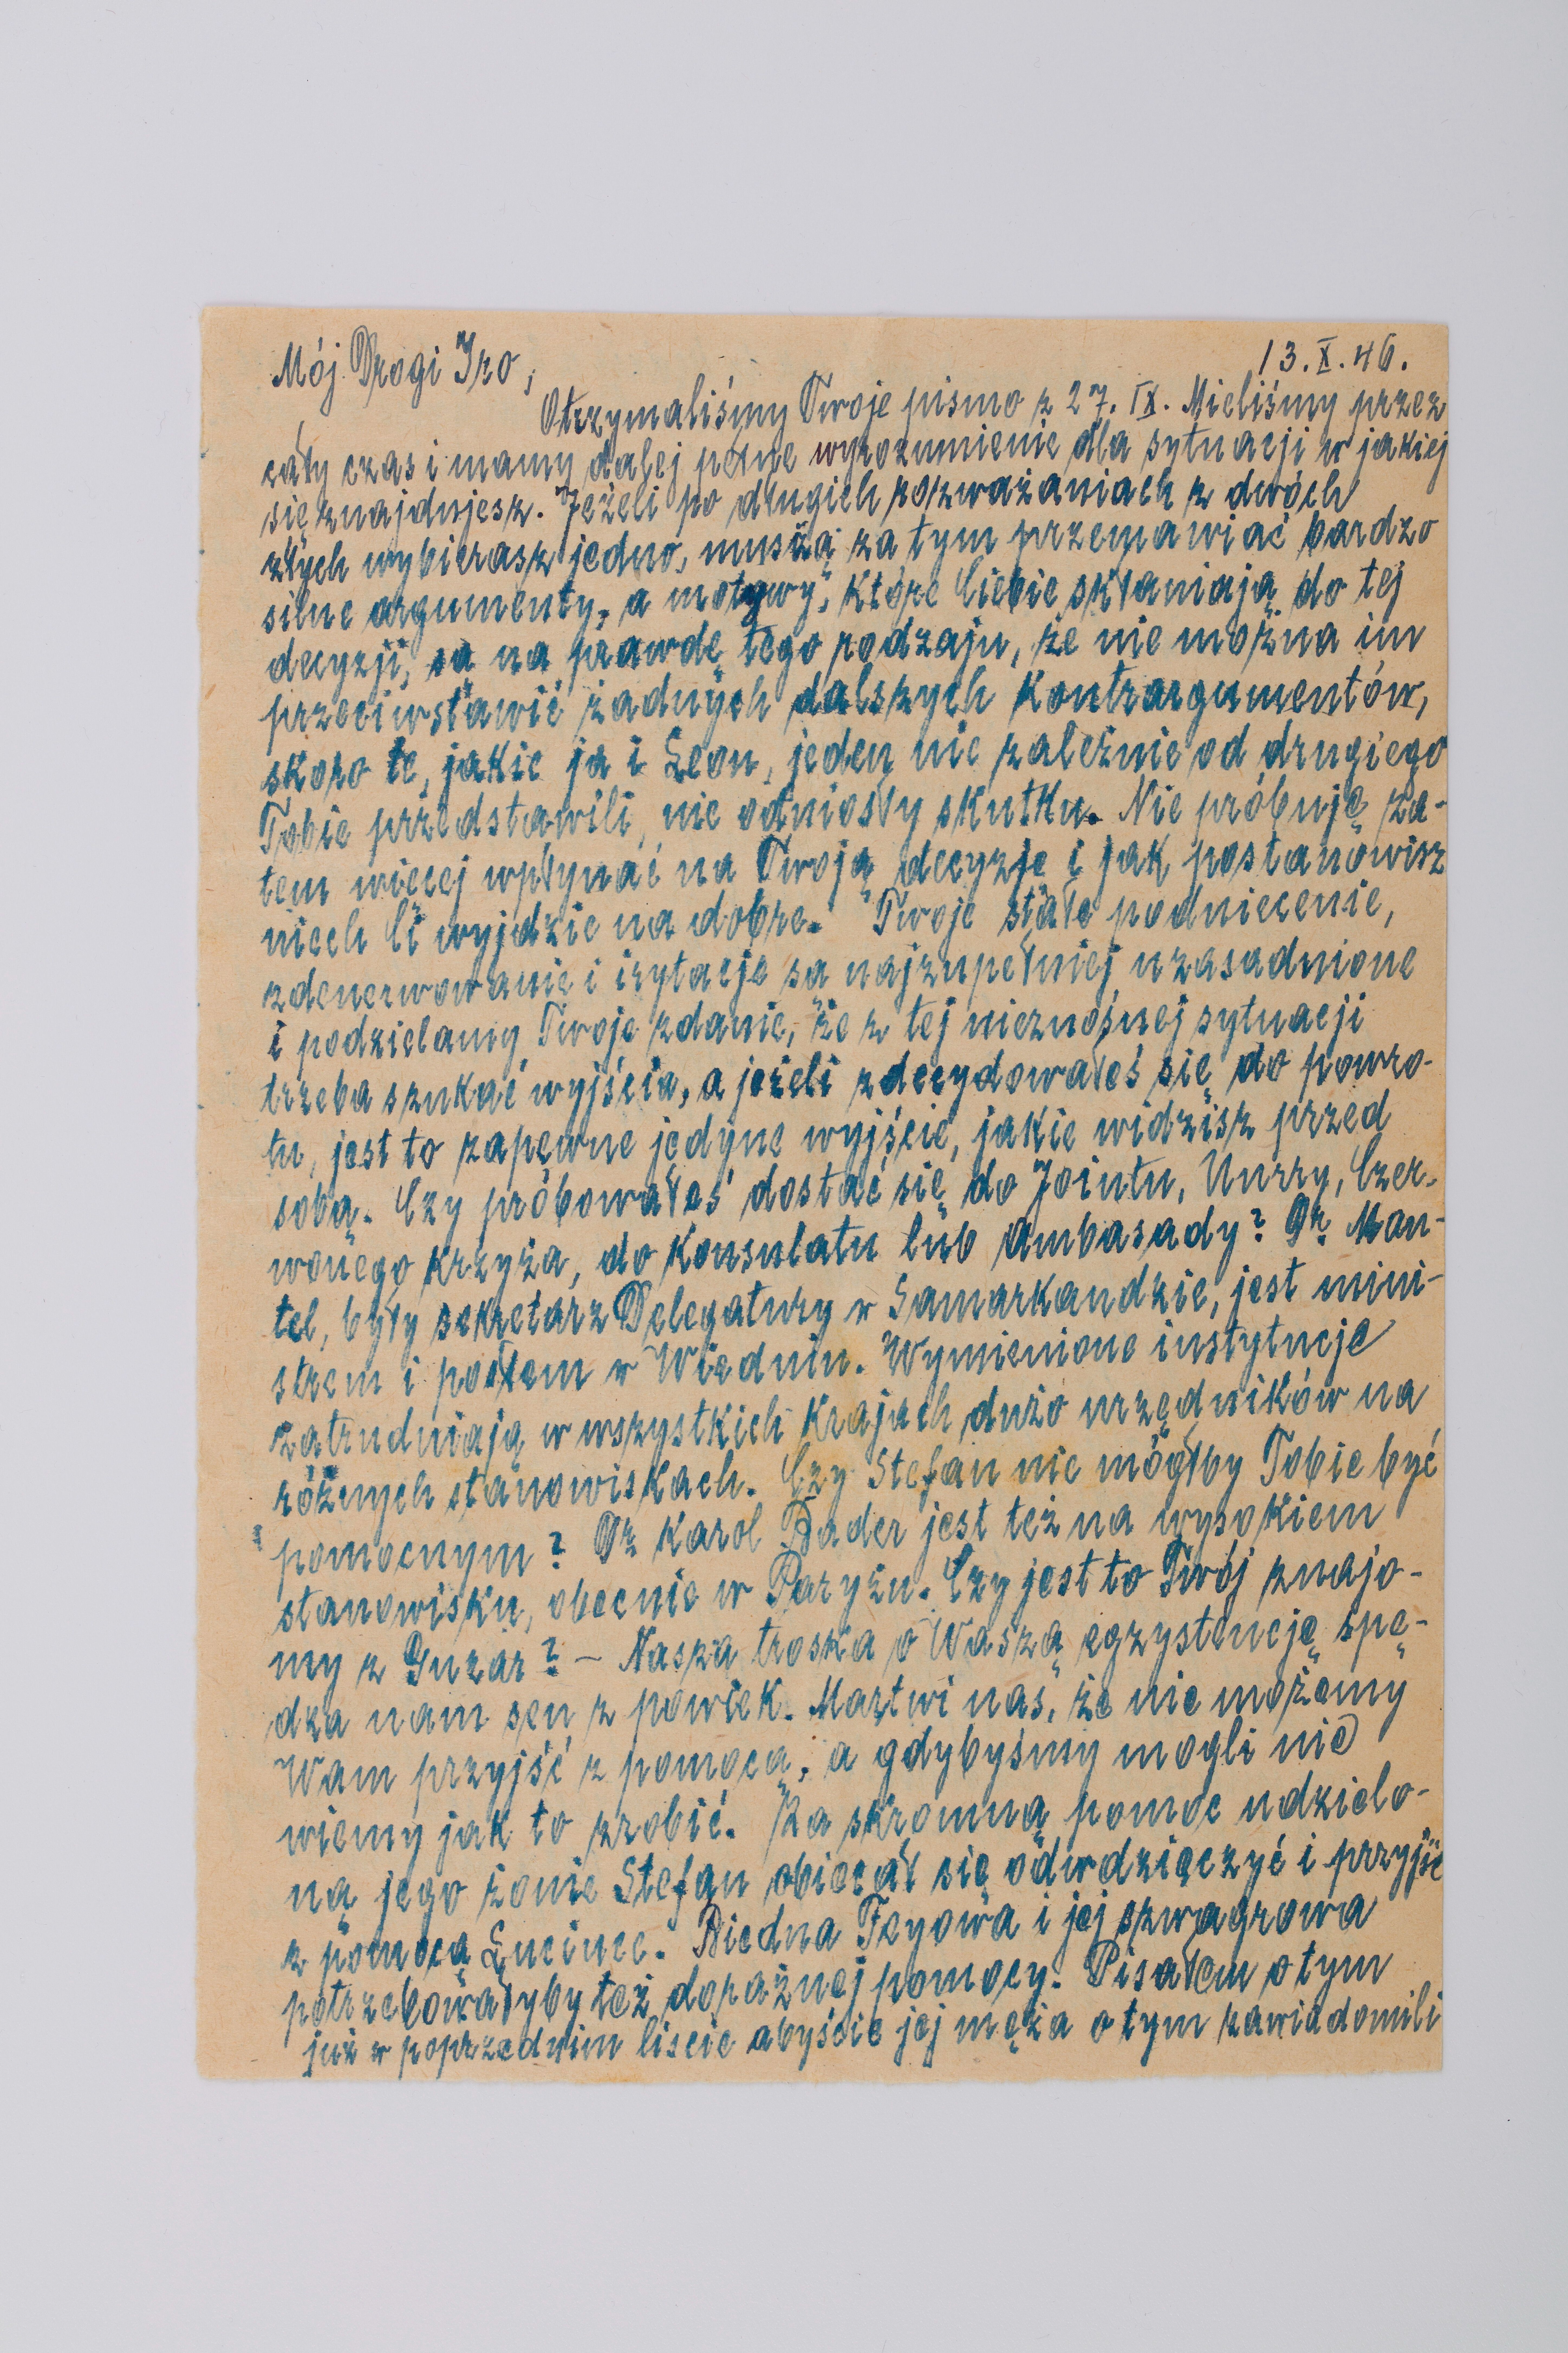 13.X.46.
Mój Drogi Izo,
Otrzymaliśmy Twoje pismo z 27.IX. Mieliśmy przez
cały czas i mamy dalej pełne wyrozumienie dla sytuacji w jakiej
się znajdujesz. Jeżeli po długich rozważaniach z dwóch
złych wybierasz jedno, muszą za tym przemawiać bardzo
silne argumenty, a motywy, które Ciebie skłaniają do tej
decyzji, są na prawdę tego rodzaju, że nie można im
przeciwstawić żadnych dalszych kontrargumentów,
skoro te, jakie ja i Leon, jeden nie zależnie od drugiego
Tobie przedstawili, nie odniosły skutku. Nie próbuję za-
tem więcej wpłynąć na Twoją decyzję i jak postanowisz
niech Ci wyjdzie na dobre. Twoje stałe podniecenie,
zdenerwowanie i irytacje są najzupełniej uzasadnione
i podzielamy Twoje zdanie, że z tej nieznośnej sytuacji
trzeba szukać wyjścia, a jeżeli zdecydowałeś się do powro-
tu, jest to zapewne jedyne wyjście, jakie widzisz przed
sobą. Czy próbowałeś dostać się do Jointu, Unrry, Czer-
wonego krzyża, do konsulatu lub ambasady? Dr. Man-
tel, były sekretarz Delegatury w Samarkandzie, jest mini-
strem i posłem w Wiedniu. Wymienione instytucje
zatrudniają w wszystkich krajach dużo urzędników na
różnych stanowiskach. Czy Stefan nie mógłby Tobie być
pomocnym? Dr Karol Bader jest też na wysokiem
stanowisku, obecnie w Paryżu. Czy jest to Twój znajo-
my z Guzar? – Nasza troska o Waszą egzystencję spę-
dza nam sen z powiek. Martwi nas, że nie możemy
Wam przyjść z pomocą, a gdybyśmy mogli nie
wiemy jak to zrobić. Za skromną pomoc udzielo-
ną jego żonie Stefan obiecał się odwdzięczyć i przyjść
z pomocą Lucince. Biedna Feyowa i jej szwagrowa
potrzebowałyby też doraźnej pomocy. Pisałem o tym
już w poprzednim liście abyście jej męża o tym zawiadomili